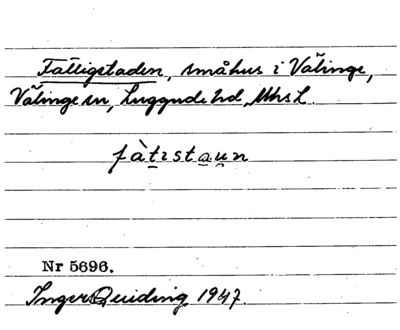 Fattigstaden, småhus i Välinge,
Välinge sn, Luggude hd, Mhs L.
fàtistaun
Nr 5696.
Inger Quiding 1947.